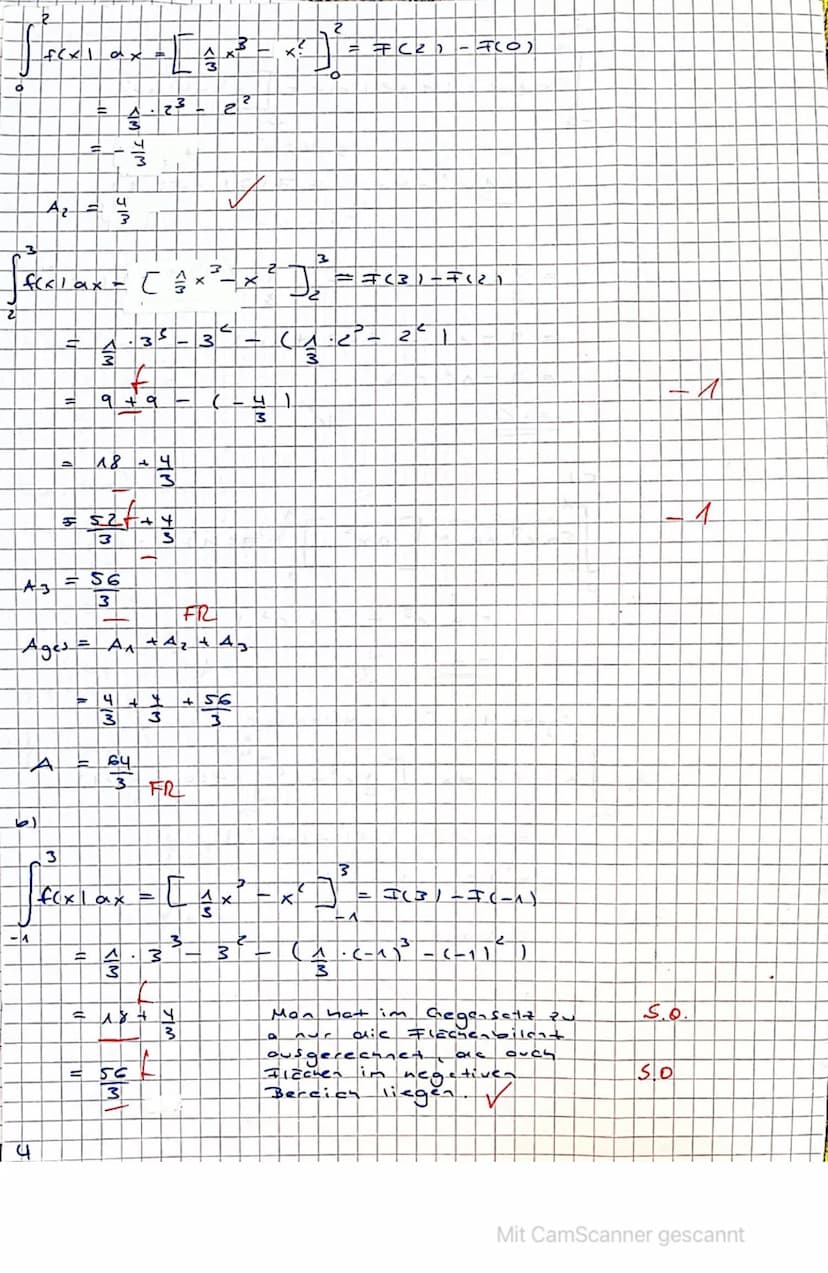 ∫₀² f(x) dx = [1/3 x³ - x²]₀² = F(2) - F(0)
= 1/3 · 2³ - 2²
= - 4/3
A₂ = 4/3 ✓
∫₂³ f(x) dx = [1/3 x³ - x²]₂³ = F(3) - F(2)
= 1/3 · 3³ - 3² - (1/3 · 2³ - 2²)
f
= 9 + 9 - (- 4/3) -1
= 18 + 4/3
= 52/3 f + 4/3 -1
A₃ = 56/3
FR
Ages = A₁ + A₂ + A₃
= 4/3 + 4/3 + 56/3
A = 64/3 FR
b)
∫₋₁³ f(x) dx = [1/3 x³ - x²]₋₁³ = F(3) - F(-1)
= 1/3 · 3³ - 3² - (1/3 · (-1)³ - (-1)²)
f
= 18 + 4/3
= 56/3 f
Man hat im Gegensatz zu S.O.
a nur die Flächenbilanz
ausgerechnet, da auch
Flächen im negativen S.O
Bereich liegen. ✓
4
Mit CamScanner gescannt